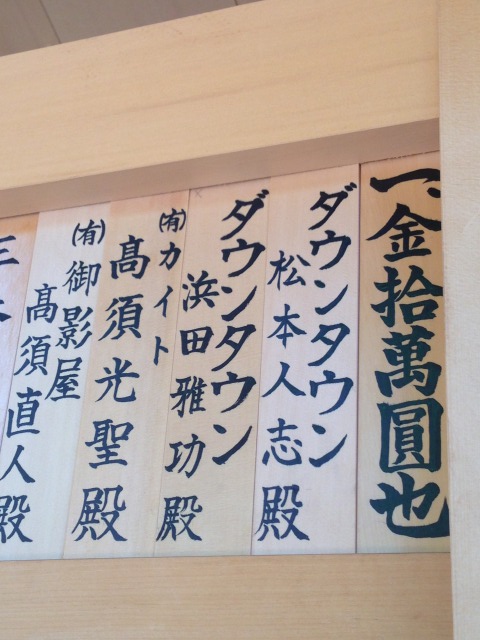 一、金拾萬圓也
ダウンタウン
松本人志殿
ダウンタウン
浜田雅功殿
㈲カイト
髙須光聖殿
㈲御影屋
髙須直人殿
三